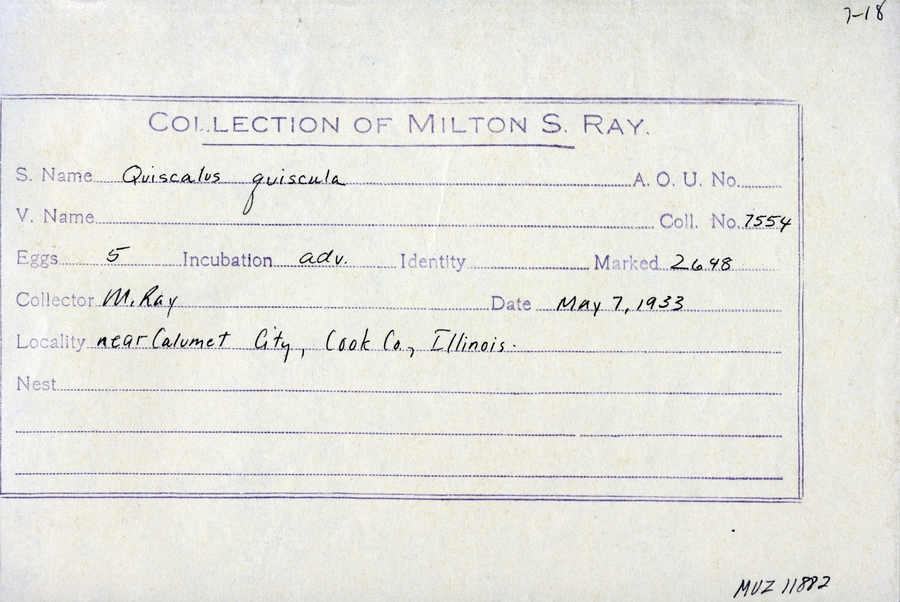 7-18
COLLECTION OF MILTON S. RAY.
S. Name Quiscalus quiscula A. O. U. No.
V. Name Coll. No. 7554
Eggs 5 Incubation adv. Identity Marked 2648
Collector M. Ray Date May 7, 1933
Locality near Calumet City, Cook Co., Illinois.
Nest
MVZ 11882